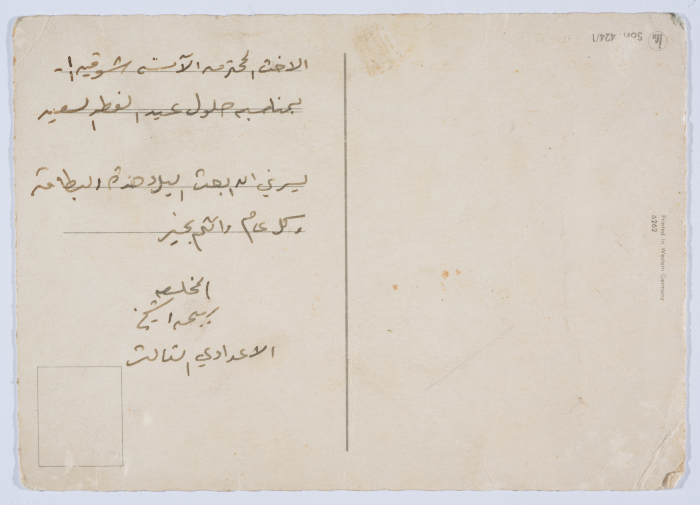 الاخت المحترمه الآنسه شوقيه ا..
بمناسبه حلول عيد الفطر السعيد
يسرني ان ابعث اليك هذه البطاقة
وكل عام وانتم بخير
المخلصه
ربيحه الشيخ
الاعدادي الثالث
Son 424/1
Printed in Western Germany
6262